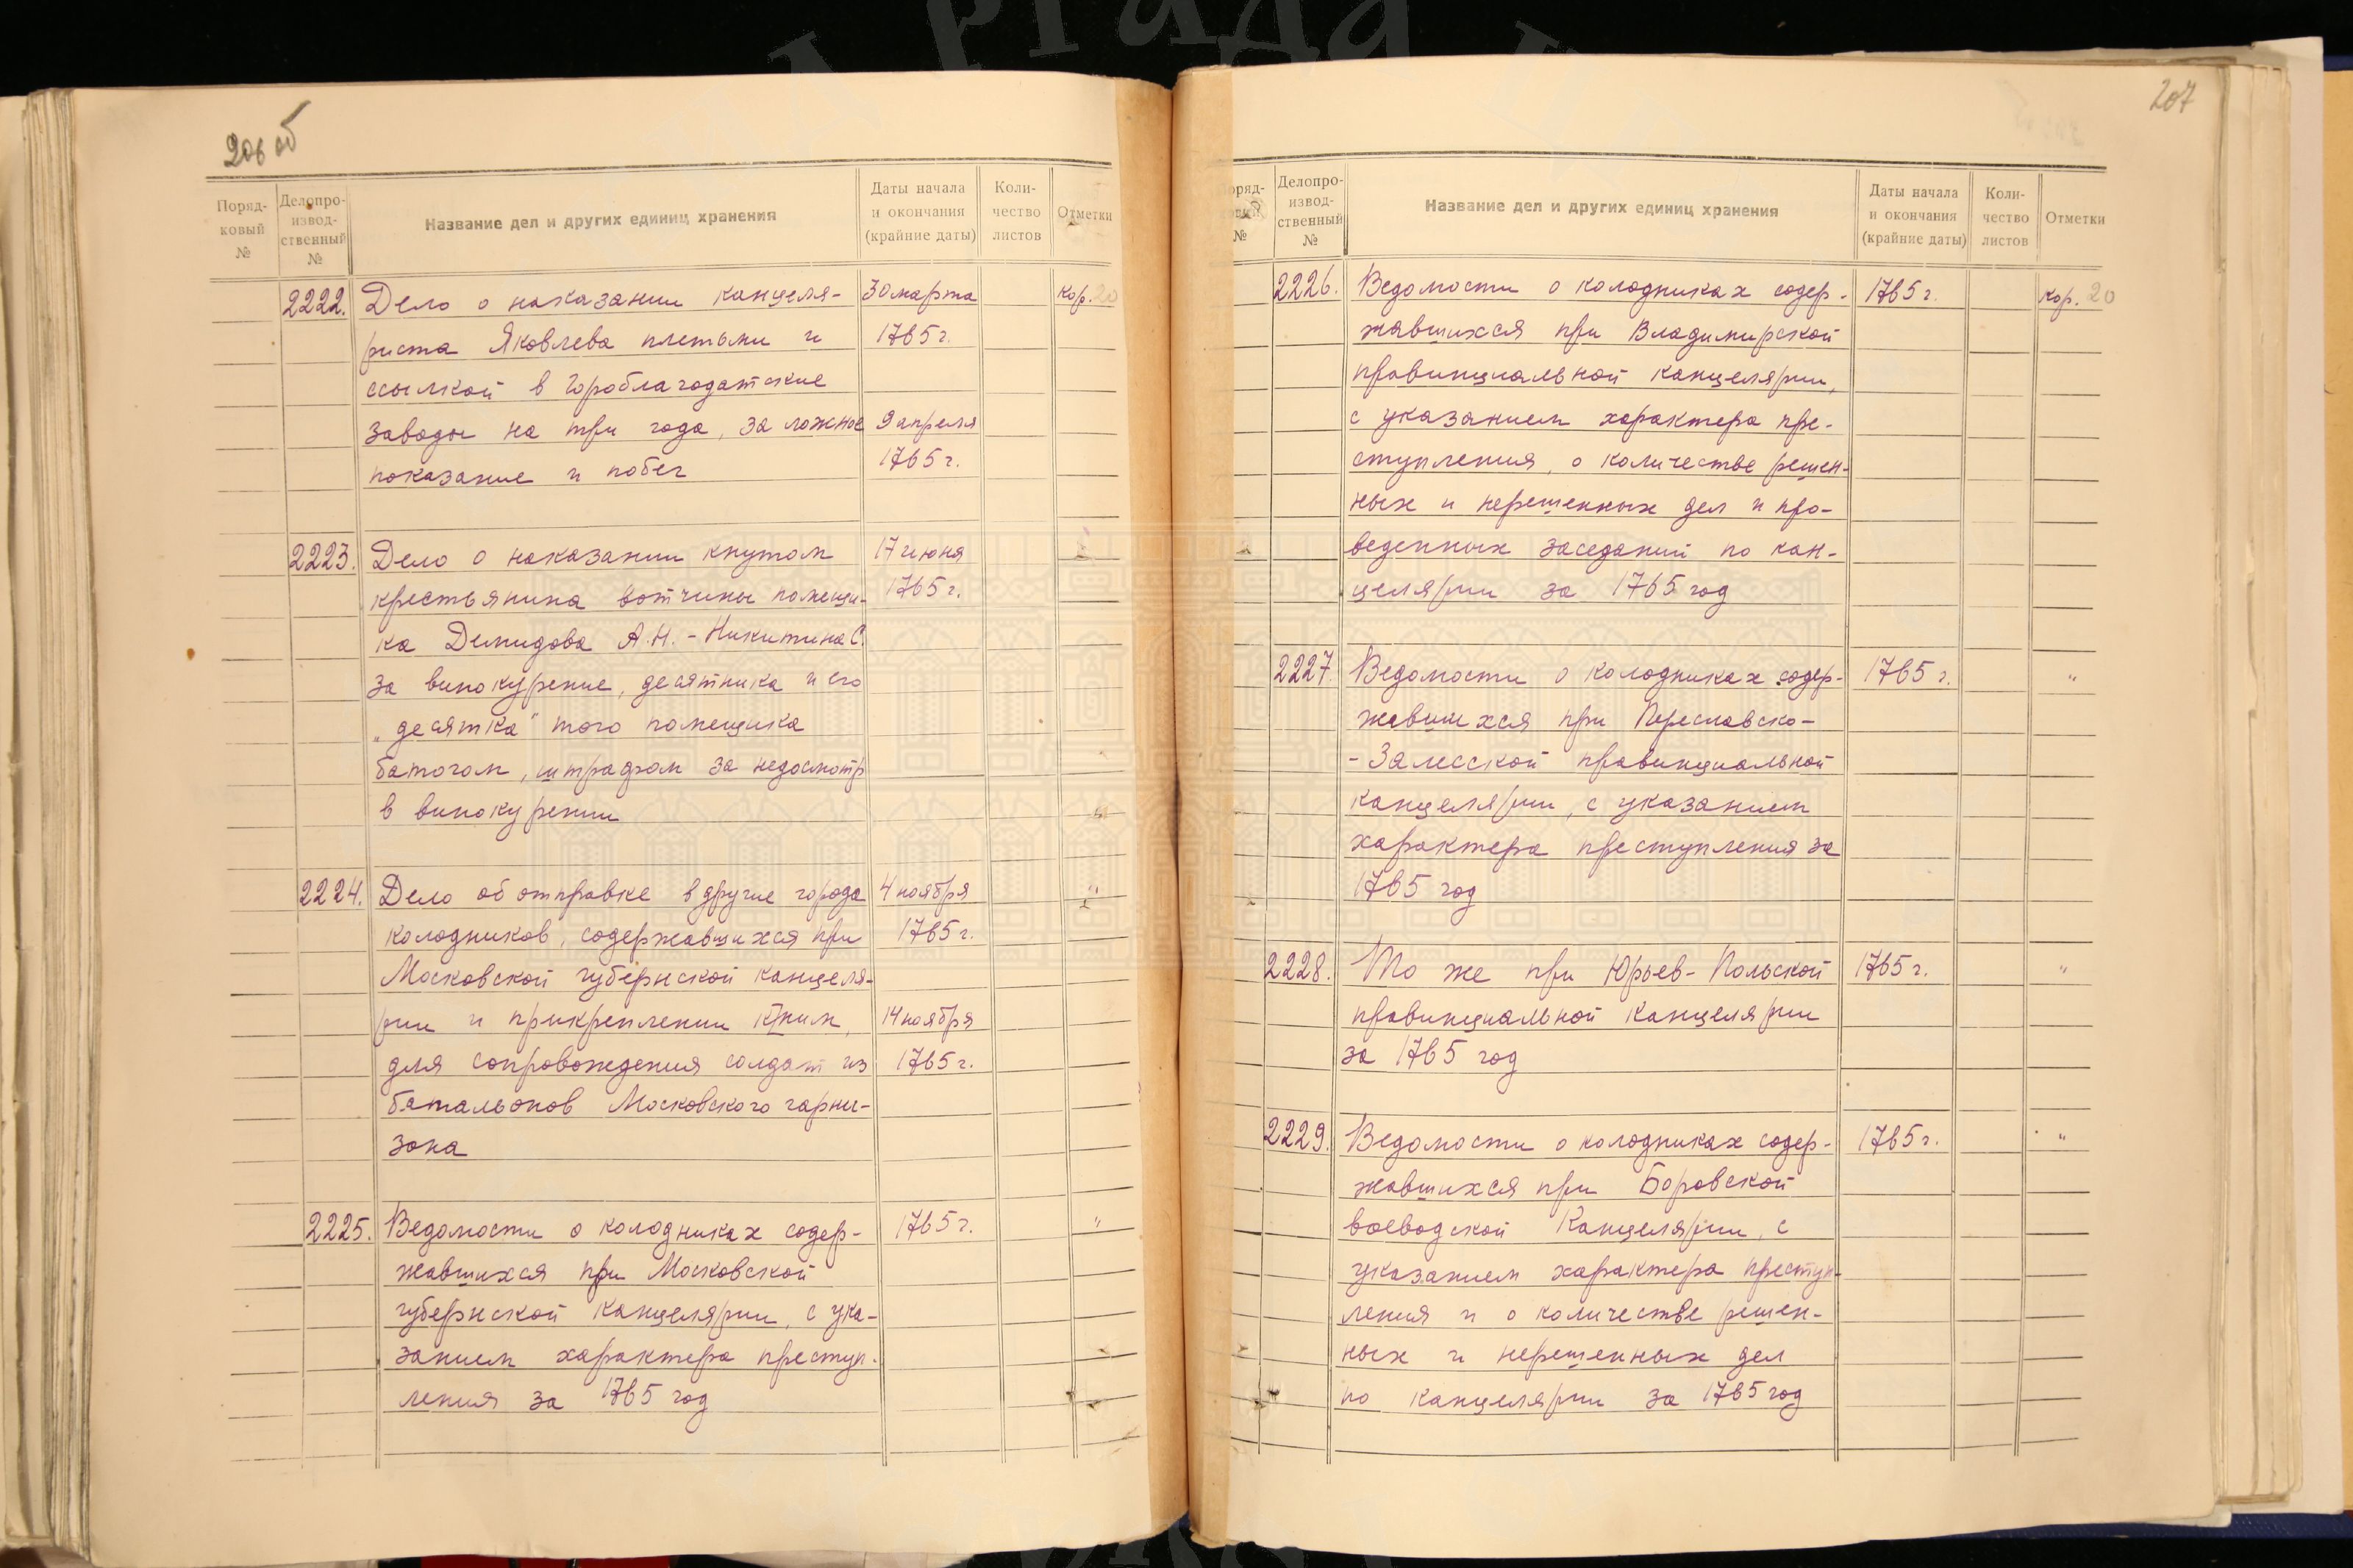 206 об
Поряд-
ковый
№
Делопро-
извод-
ственный
№
Название дел и других единиц хранения
Даты начала
и окончания
(крайние даты)
Коли-
чество
листов
Отметки
2222. Дело о наказании канцеля- 30 марта кор. 20
риста Яковлева плетьми и 1765 г.
ссылкой в Гороблагодатские
заводы на три года, за ложное 9 апреля
показание и побег 1765 г.
2223. Дело о наказании кнутом 17 июня
крестьянина вотчины помещи- 1765 г.
ка Демидова А.Н. - Никитина С.
за винокурение, десятника и его
„десятка" того помещика
батогом, штрафом за недосмотр
в винокурении "
2224. Дело об отправке в другие города 4 ноября "
колодников, содержавшихся при 1765 г.
Московской губернской канцеля-
рии и прикреплении к ним, 14 ноября
для сопровождения солдат из 1765 г.
батальонов Московского гарни-
зона
2225. Ведомости о колодниках содер- 1765 г. "
жавшихся при Московской
губернской канцелярии, с ука-
занием характера преступ-
ления за 1765 год
207
Поряд-
ковый
№
Делопро-
извод-
ственный
№
Название дел и других единиц хранения
Даты начала
и окончания
(крайние даты)
Коли-
чество
листов
Отметки
2226. Ведомости о колодниках содер- 1765 г. кор. 20
жавшихся при Владимирской
провинциальной канцелярии,
с указанием характера пре-
ступления, о количестве решен-
ных и нерешенных дел и про-
веденных заседаний по кан-
целярии за 1765 год
2227. Ведомости о колодниках содер- 1765 г. "
жавшихся при Переславско-
- Залесской провинциальной
канцелярии, с указанием
характера преступления за
1765 год
2228. То же при Юрьев-Польской 1765 г. "
провинциальной канцелярии
за 1765 год
2229. Ведомости о колодниках содер- 1765 г. "
жавшихся при Боровской
воеводской Канцелярии, с
указанием характера преступ-
ления и о количестве решен-
ных и нерешенных дел
по канцелярии за 1765 год